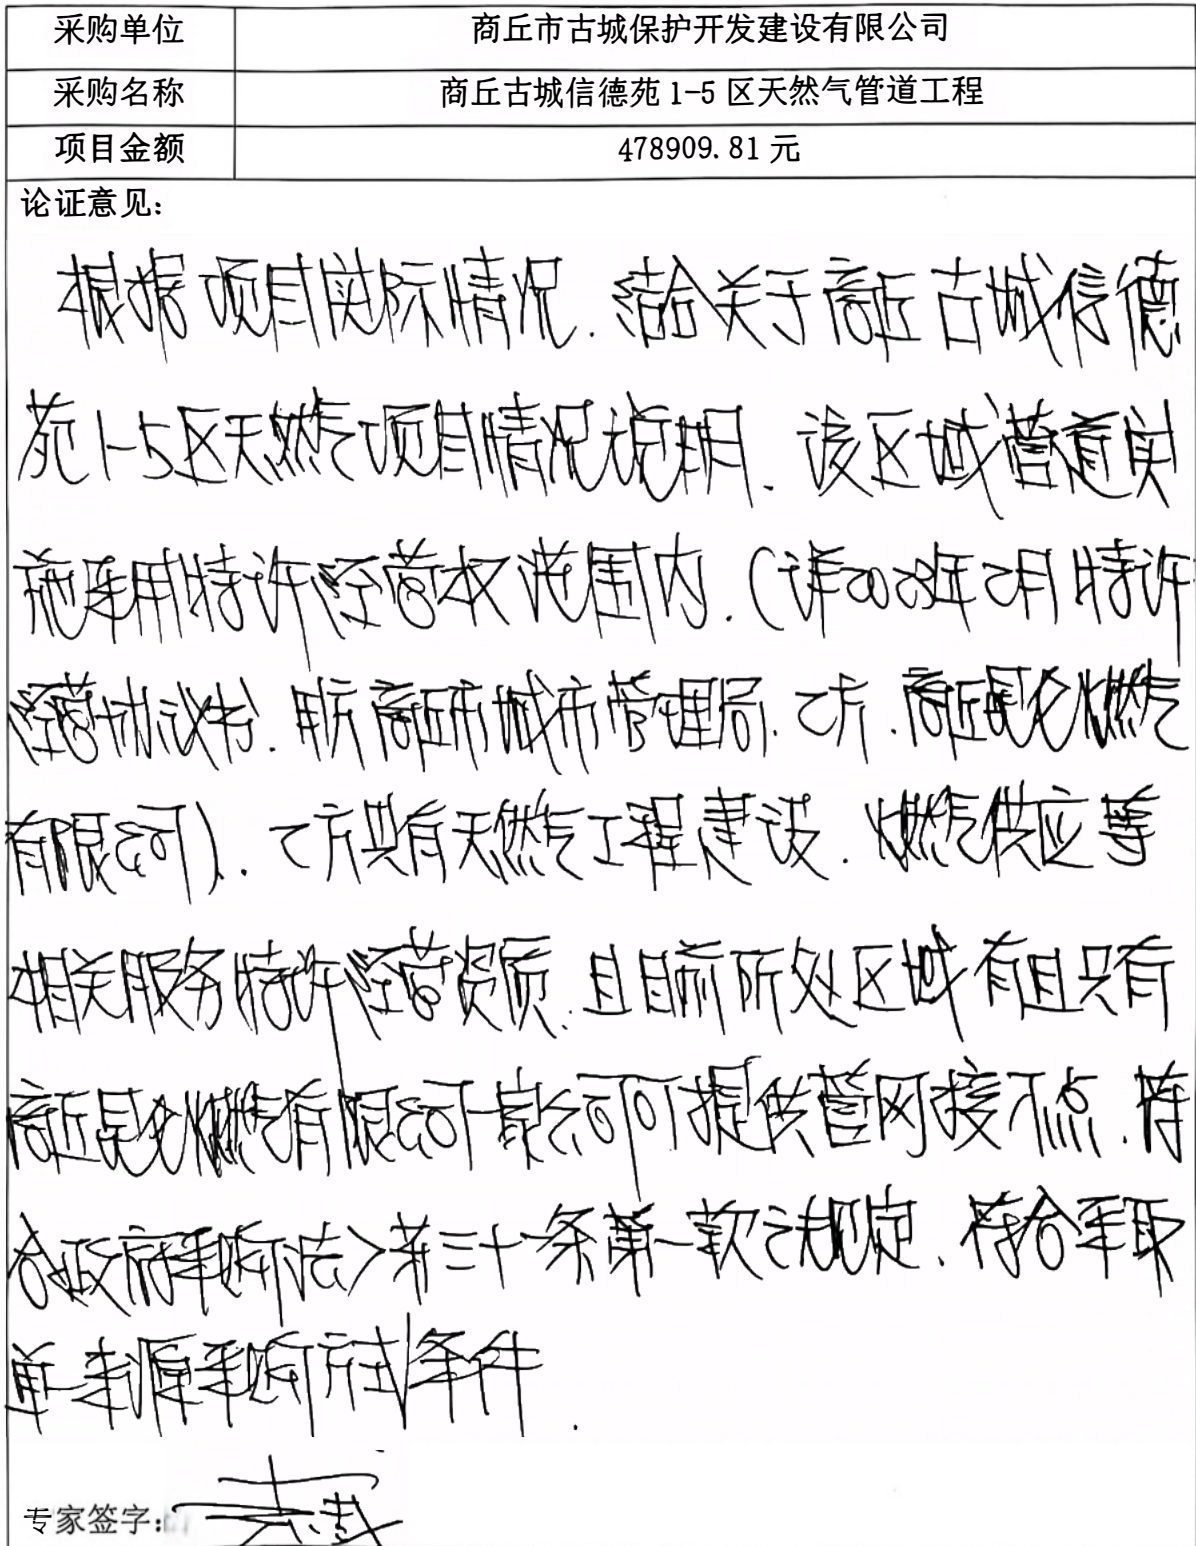 采购单位 商丘市古城保护开发建设有限公司
采购名称 商丘古城信德苑1-5区天然气管道工程
项目金额 478909.81元
论证意见：
根据项目实际情况，结合关于商丘古城信德
苑1-5区天然气项目情况说明，该区域管道实
施采用特许经营权范围内，（详2023年2月特许
经营协议书，甲方商丘市城市管理局，乙方，商丘昆仑燃气
有限公司），乙方具有天然气工程建设，燃气供应等
相关服务特许经营资质，且目前所处区域有且只有
商丘昆仑燃气有限公司一家公司可提供管网接下点，符
合政府采购法》第三十一条第一款之规定，符合采取
单一来源采购方式条件．
专家签字：